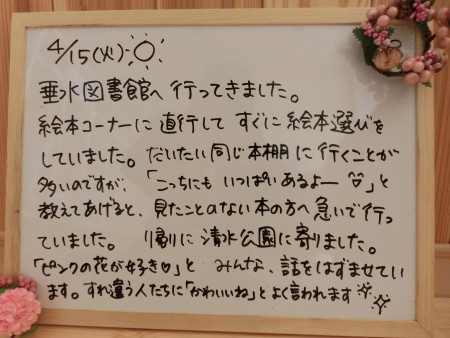 4/15(火)
垂水図書館へ行ってきました。
絵本コーナーに直行してすぐに絵本選びを
していました。だいたい同じ本棚に行くことが
多いのですが、「こっちにもいっぱいあるよー」と
教えてあげると、見たことのない本の方へ急いで行っ
ていました。 帰りに清水公園に寄りました。
「ピンクの花が好き♡」とみんな、話をはずませてい
ます。すれ違う人たちに「かわいいね」とよく言われます